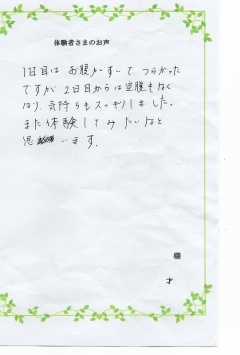 体験者さまのお声
1日目は お腹がすいて つらかった
ですが 2日目からは 空腹もなく
なり、気持ちもスッキリしました。
また体験してみたいなと
思います。
様
才